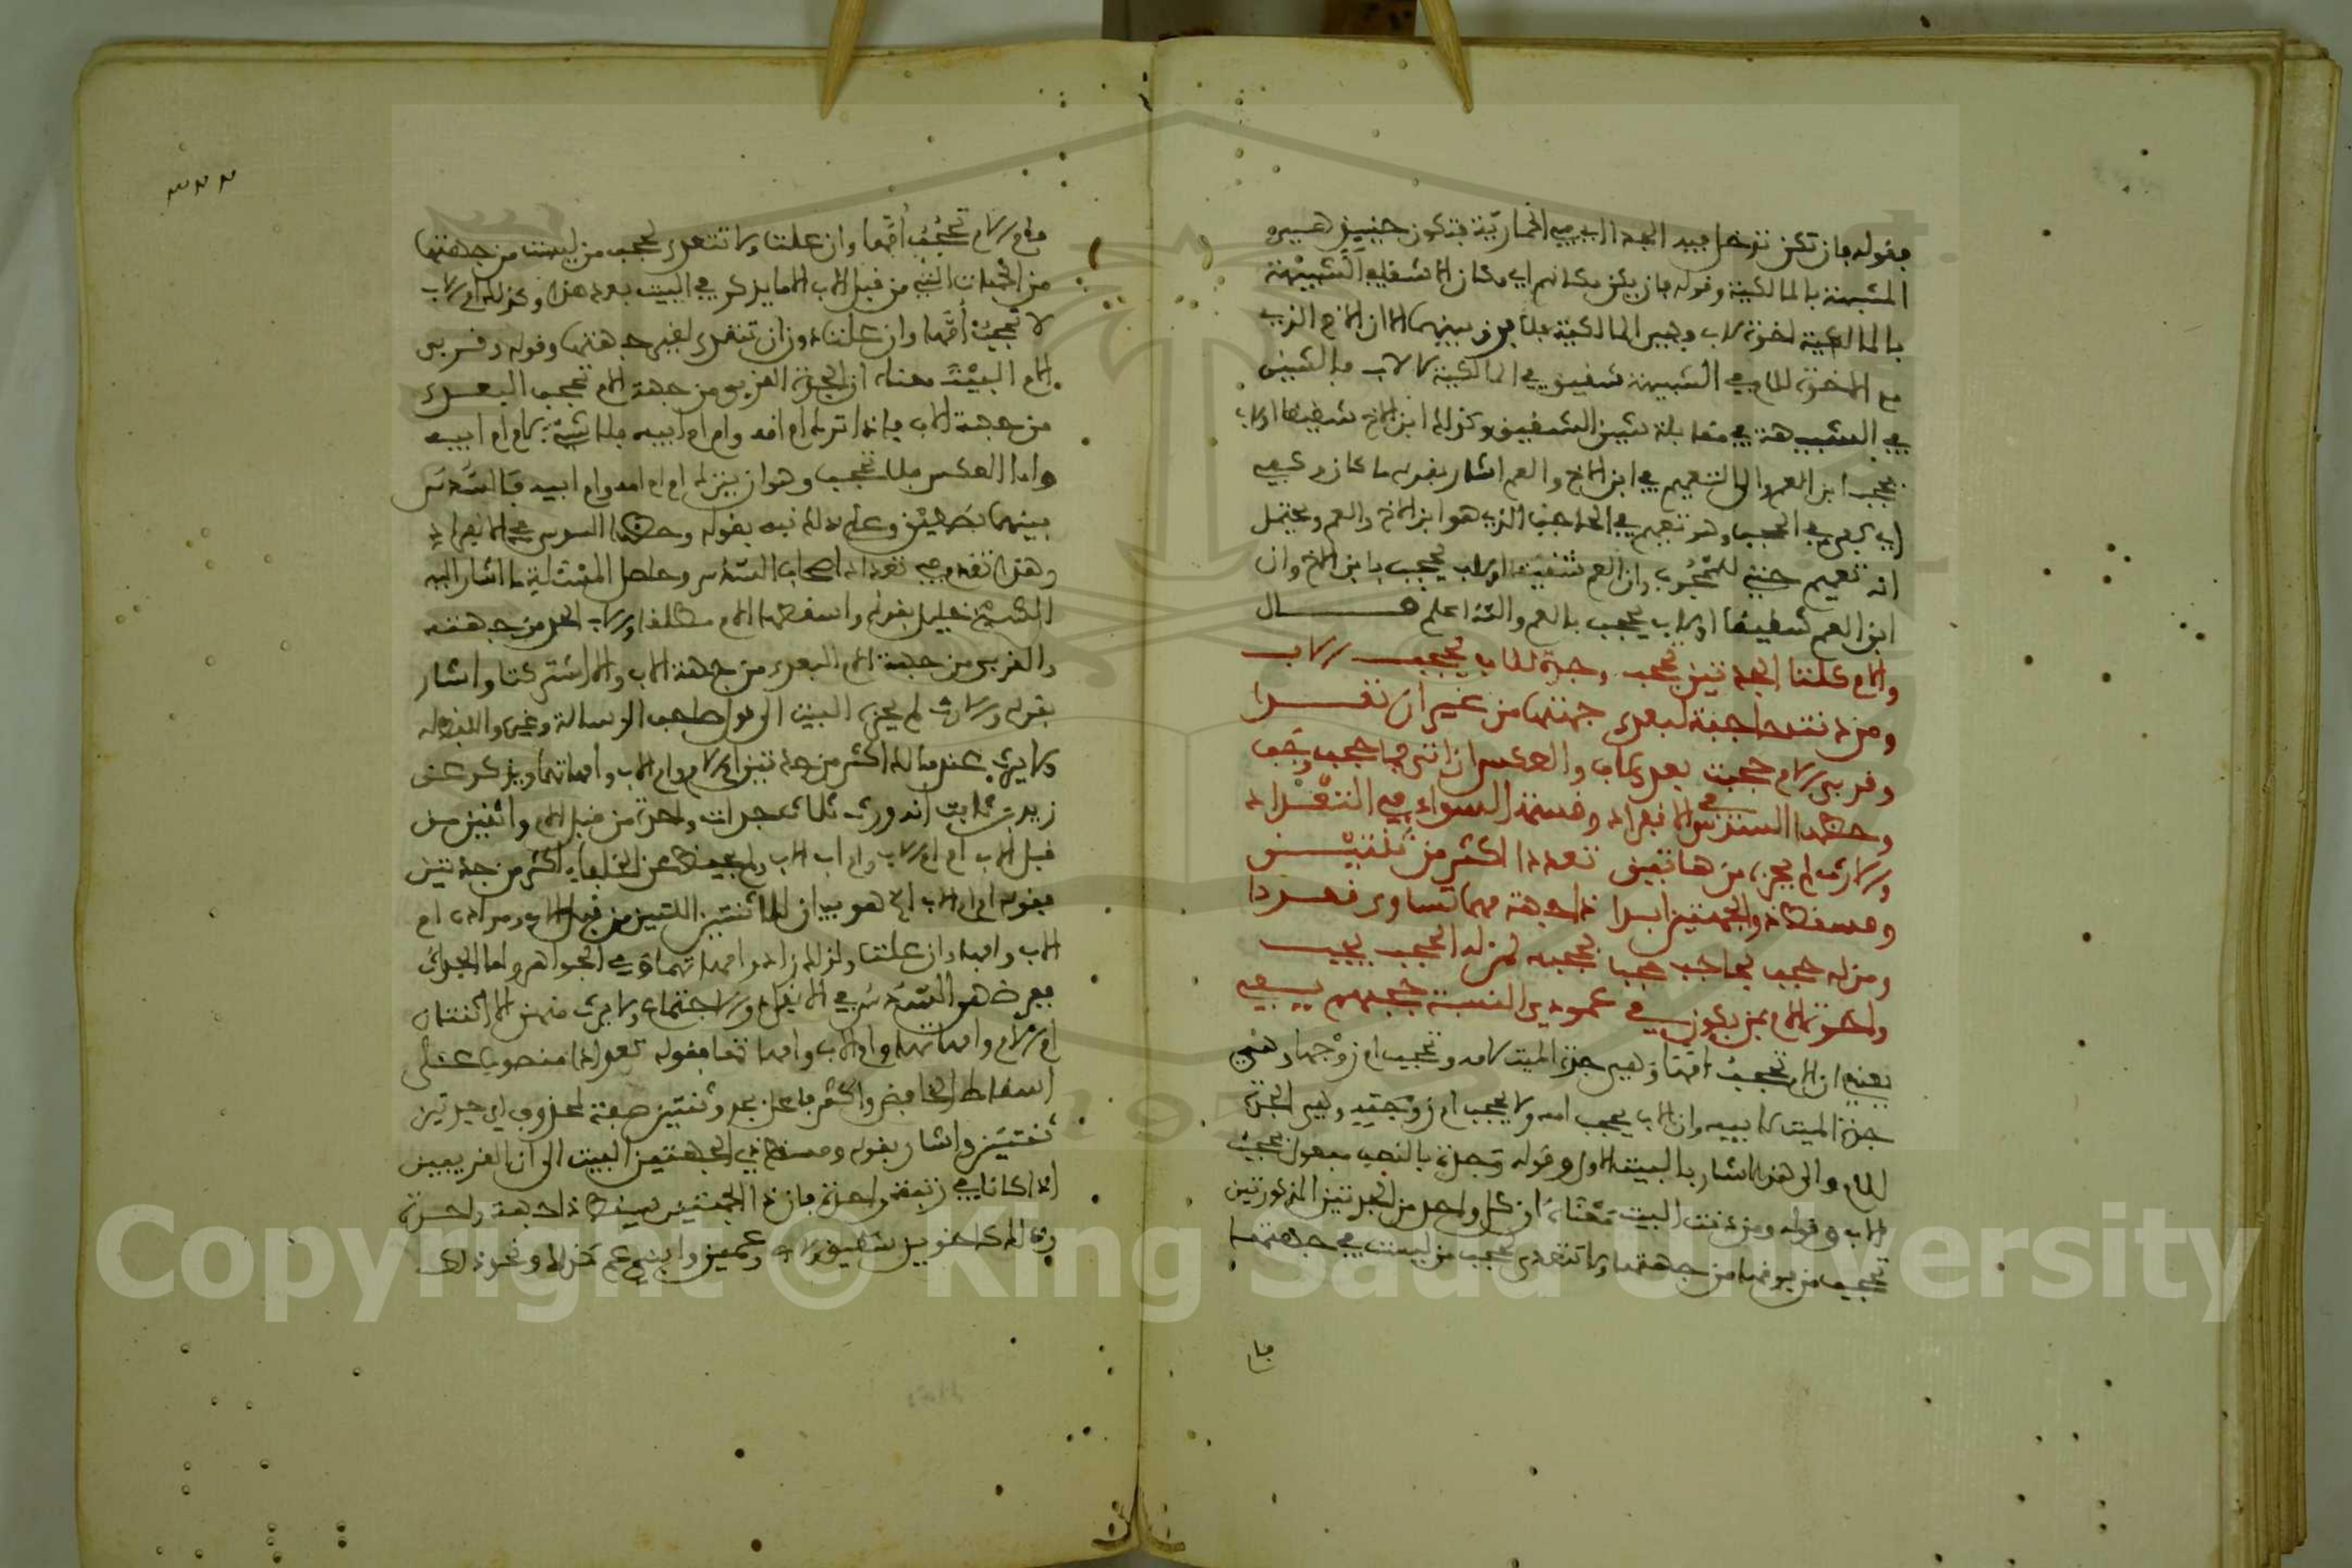 فقوله فان تكن تدخل فيه الجد اي في الحمارية فتكون حينئذ هي
المشبهة بالمالكية وقوله فان يكن مكانهم اي مكان الاشقاء الشبيهة
بالمالكية اخوة لاب وهي المالكية فلا فرق بينهما الا ان الاخ الذي
مع الاخوة للام في الشبيهة شقيق وفي المالكية للاب فالشين
في الشبيهة في مقابلة شين الشقيق وكذلك ابن الاخ شقيقا او لاب
يحجب ابن العم والى التعميم في ابن الاخ والعم اشار بقوله ما كان وكيفه
اي يحجب وهو تعميم في الحاجب الذي هو ابن الاخ والعم ويحتمل
انه تعميم حتى للمحجوب وان العم شقيقا او لاب يحجب بابن الاخ وان
ابن العم شقيقا او لاب يحجب بالعم والله اعلم قال
والام كلتا الجدتين تحجب وجدة للاب يحجب الاب
ومن دنت حاجبة لبعدى جهتها من غير ان تعدا
وقربى الام حجبت بعدى لاب والعكس ان اتى فما حجب وجب
وحظها السدس في الانفراد وقسمة السواء في التعداد
والارث لم يحزه من هاتين تعددا اكثر من ثنتين
ومسقط ذو الجهتين ابدا ذا جهة مهما تساوى قعددا
ومن له حجب بحاجب حجب يحجبه من له الحجب يجب
واخوة الام بمن يكون في عمودي النسبة حجبهم يفي
يعني ان الام تحجب امها وهي جدة الميت لامه وتحجب ام زوجها وهي
جدة الميت لابيه وان الاب يحجب امه ولا يحجب ام زوجته وهي الجدة
للام والى هذا اشار بالبيت الاول وقوله وجدة بالنصب مفعول يحجب
الاب وقوله ومن دنت البيت معناه ان كل واحدة من الجدتين المذكورتين
تحجب من فوقها من جهتها ولا تتعدى لحجب من ليست في جهتها
فا
فام الام تحجب امها وان علت ولا تتعدى لحجب من ليست من جهتها
من الجدات التي من قبل الاب الا ما يذكر في البيت بعد هذا وكذلك ام الاب
لا تحجب امها وان علت دون ان تتعدى لغير جهتها وقوله وقربى
الام البيت معناه ان الجدة القربى من جهة الام تحجب البعدى
من جهة الاب فاذا ترك ام امه وام ام ابيه فلا شيء لام ام ابيه
واما العكس فلا تحجب وهو ان يترك ام ام امه وام ابيه فالسدس
بينهما نصفين وعلى ذلك نبه بقوله وحظها السدس في الانفراد
وهذا تقدم في تعداد اصحاب السدس وحاصل المسئلة ما اشار اليه
الشيخ خليل بقوله واسقطها الام مطلقا والاب الجدة من جهته
والقربى من جهة الام البعدى من جهة الاب والا اشتركتا واشار
بقوله والارث لم يحزه البيت الى قول صاحب الرسالة وغيره واللفظ له
ولا يرث عند مالك اكثر من جدتين ام الام وام الاب وامهاتهما ويذكر عن
زيد بن ثابت انه ورث ثلاث جدات واحدة من قبل الام واثنتين من
قبل الاب ام ام الاب وام اب الاب ولم يحفظ عن الخلفاء اكثر من جدتين
فقوله ام ام الاب الخ هو بيان للاثنتين اللتين من قبل الاب ومراده ام
الاب وامها وان علت ولذلك زاد وامهاتهما وفي الجواهر واما الجدات
ففرضهن السدس في الانفراد والاجتماع ولا يرث منهن الا اثنتان
ام الام وامهاتها وام الاب وامهاتها فقوله تعددا منصوب على
اسقاط الخافض واكثر فاعل يحز وثنتين صفة لمحذوف اي جدتين
ثنتين واشار بقوله ومسقط ذو الجهتين البيت الى ان القريبين
اذا كانا في رتبة واحدة فان ذا الجهتين يسقط ذا جهة واحدة
وذلك كاخوين شقيق ولاب وعمين وابني عم كذلك ونحو ذلك